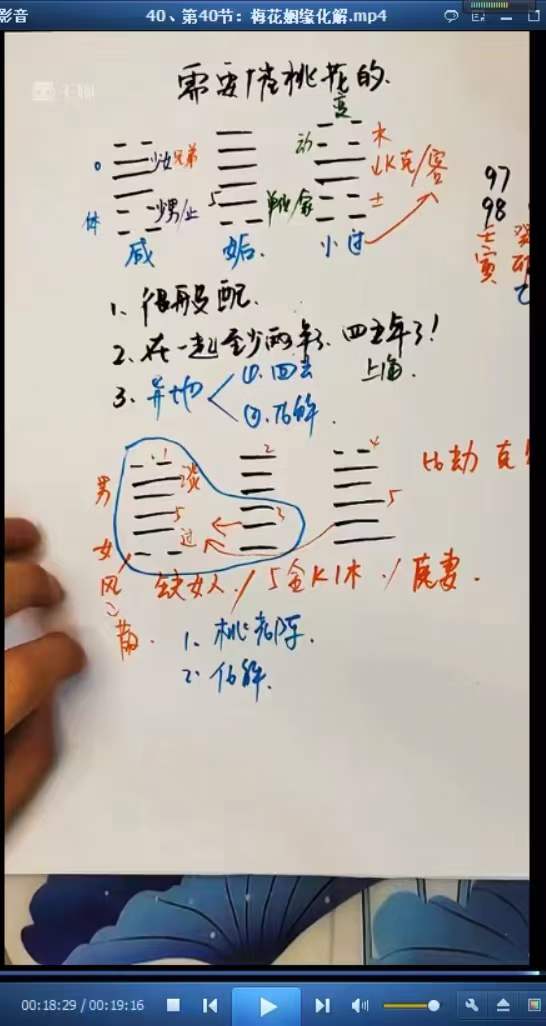 影音
40、第40节：梅花姻缘化解.mp4
需要催桃花的.
变
动 木
少女 兄弟 克/客
体 少男/止 5 土
97
98
壬寅
咸 姤. 小过
1、很般配.
2、在一起至少两年了、四五年了!
上海.
3、异地 ①.回去
②.化解.
1 2 4
男 5 3 5
女 过
比劫 克
风
散.
缺女人. / 5金K1木 / 克妻.
1、桃花阵.
2、化解.
00:18:29 / 00:19:16